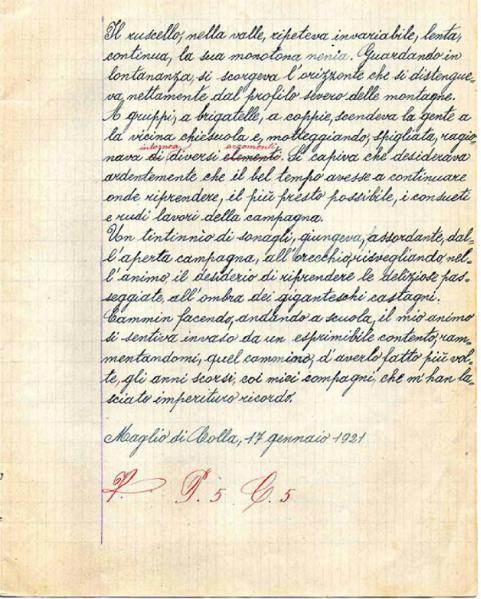 Il ruscello, nella valle, ripeteva invariabile, lenta,
continua, la sua monotona nenia. Guardando in
lontananza, si scorgeva l'orizzonte che si distingue-
va, nettamente dal profilo severo delle montagne.
A gruppi, a brigatelle, a coppie, scendeva la gente a
la vicina chiesuola e, motteggiando, spigliata, ragio-
intorno a argomenti
nava di diversi elementi. Si capiva che desiderava
ardentemente che il bel tempo avesse a continuare
onde riprendere, il più presto possibile, i consueti
e rudi lavori della campagna.
Un tintinnìo di sonagli, giungeva, assordante, dal-
l'aperta campagna, all'orecchio, risvegliando nel-
l'animo, il desiderio di riprendere le deliziose pas-
seggiate, all'ombra dei giganteschi castagni.
Cammin facendo, andando a scuola, il mio animo
si sentiva invaso da un esprimibile contento, ram-
mentandomi, quel cammino, d'averlo fatto più vol-
te, gli anni scorsi, coi miei compagni, che m'han la-
sciato imperituro ricordo.
Maglio di Colla, 17 gennaio 1921
V. P. 5 C. 5